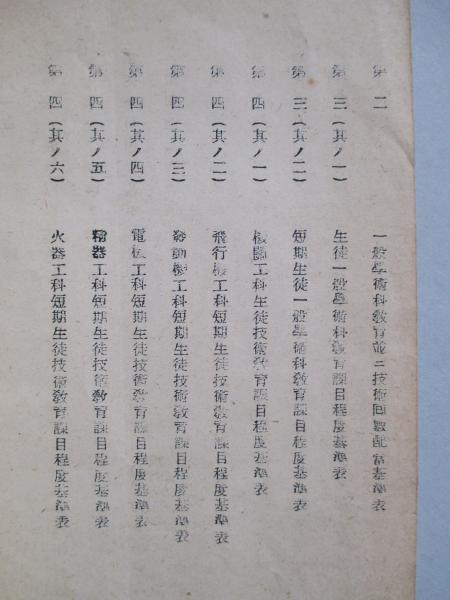 第二 一般學術科敎育並ニ技術回數配當基準表
第三(其ノ一) 生徒一般學術科敎育課目程度基準表
第三(其ノ二) 短期生徒一般學術科敎育課目程度基準表
第四(其ノ一) 機關工科生徒技術敎育課目程度基準表
第四(其ノ二) 飛行機工科短期生徒技術敎育課目程度基準表
第四(其ノ三) 發動機工科短期生徒技術敎育課目程度基準表
第四(其ノ四) 電機工科短期生徒技術敎育課目程度基準表
第四(其ノ五) 精器工科短期生徒技術敎育課目程度基準表
第四(其ノ六) 火器工科短期生徒技術敎育課目程度基準表